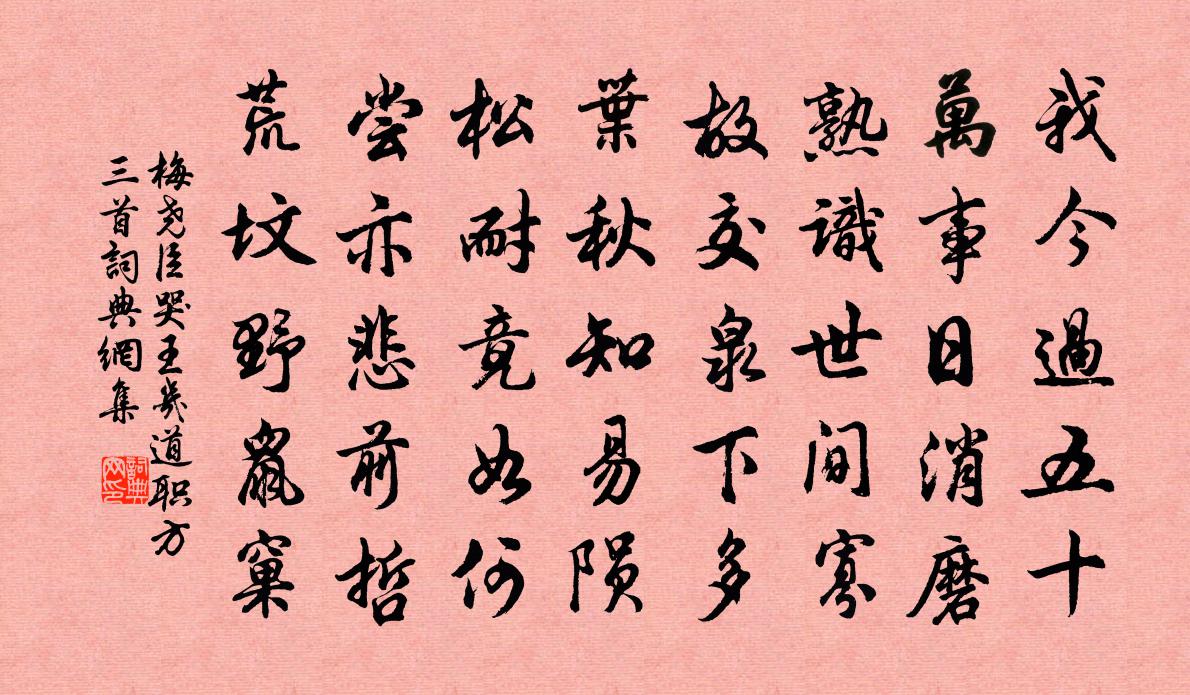 我今過五十
萬事日消磨
熟識世間寡
故交泉下多
葉秋知易隕
松耐竟如何
尝亦悲前哲
荒坟野鼠窠
梅尧臣哭王幾道职方
三首詞典網集
詞典网印